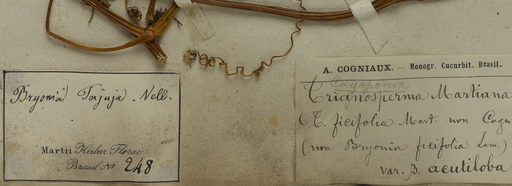 Bryonia Tajuja. Vell.
Martii Herbar. Florae
Brasil. No 248
A. COGNIAUX. — Monogr. Cucurbit. Brasil.
Cayaponia
Trianosperma Martiana
(T. ficifolia Mart. non Cogn
(non Bryonia ficifolia Lam.)
Var. β. acutiloba